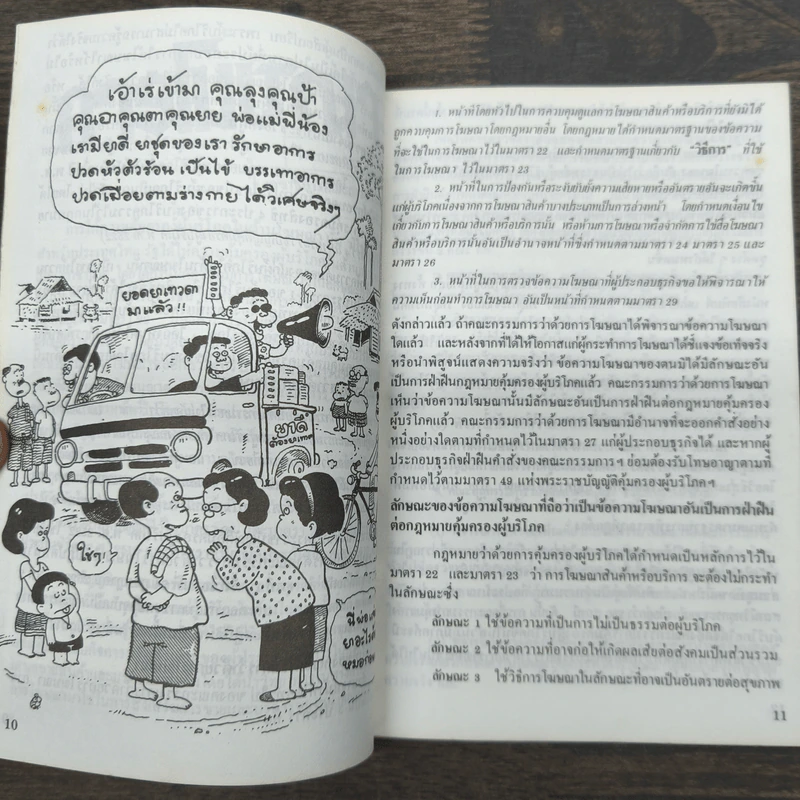 เอ้าเร่เข้ามา คุณลุงคุณป้า
คุณอาคุณตาคุณยาย พ่อแม่พี่น้อง
เรามียาดี ยาชุดของเรา รักษาอาการ
ปวดหัวตัวร้อน เป็นไข้ บรรเทาอาการ
ปวดเมื่อยตามร่างกายได้วิเศษจริงๆ
ยอดยาเทวดา
มาแล้ว!!
ยาดี
ใช่ๆ!
10
1. หน้าที่โดยทั่วไปในการควบคุมดูแลการโฆษณาสินค้าหรือบริการที่ยังมิได้
ถูกควบคุมการโฆษณาโดยกฎหมายอื่น โดยกฎหมายได้กำหนดมาตรฐานของข้อความ
ที่จะใช้ในการโฆษณา ไว้ในมาตรา 22 และกำหนดมาตรฐานเกี่ยวกับ "วิธีการ" ที่ใช้
ในการโฆษณา ไว้ในมาตรา 23
2. หน้าที่ในการป้องกันหรือระงับยับยั้งความเสียหายหรืออันตรายอันจะเกิดขึ้น
แก่ผู้บริโภคเนื่องจากการโฆษณาสินค้าบางประเภทเป็นการล่วงหน้า โดยกำหนดเงื่อนไข
เกี่ยวกับการโฆษณาสินค้าหรือบริการนั้น หรือห้ามการโฆษณาหรือจำกัดการใช้สื่อโฆษณา
สินค้าหรือบริการนั้นอันเป็นอำนาจหน้าที่ซึ่งกำหนดตามมาตรา 24 มาตรา 25 และ
มาตรา 26
3. หน้าที่ในการตรวจข้อความโฆษณาที่ผู้ประกอบธุรกิจขอให้พิจารณาให้
ความเห็นก่อนทำการโฆษณา อันเป็นหน้าที่กำหนดตามมาตรา 29
ดังกล่าวแล้ว ถ้าคณะกรรมการว่าด้วยการโฆษณาได้พิจารณาข้อความโฆษณา
ใดแล้ว และหลังจากที่ได้ให้โอกาสแก่ผู้กระทำการโฆษณาได้ชี้แจงข้อเท็จจริง
หรือนำพิสูจน์แสดงความจริงว่า ข้อความโฆษณาของตนมิได้มีลักษณะอัน
เป็นการฝ่าฝืนกฎหมายคุ้มครองผู้บริโภคแล้ว คณะกรรมการว่าด้วยการโฆษณา
เห็นว่าข้อความโฆษณานั้นมีลักษณะอันเป็นการฝ่าฝืนต่อกฎหมายคุ้มครอง
ผู้บริโภคแล้ว คณะกรรมการว่าด้วยการโฆษณามีอำนาจที่จะออกคำสั่งอย่าง
หนึ่งอย่างใดตามที่กำหนดไว้ในมาตรา 27 แก่ผู้ประกอบธุรกิจได้ และหากผู้
ประกอบธุรกิจฝ่าฝืนคำสั่งของคณะกรรมการฯ ย่อมต้องรับโทษอาญาตามที่
กำหนดไว้ตามมาตรา 49 แห่งพระราชบัญญัติคุ้มครองผู้บริโภคฯ
ลักษณะของข้อความโฆษณาที่ถือว่าเป็นข้อความโฆษณาอันเป็นการฝ่าฝืน
ต่อกฎหมายคุ้มครองผู้บริโภค
กฎหมายว่าด้วยการคุ้มครองผู้บริโภคได้กำหนดเป็นหลักการไว้ใน
มาตรา 22 และมาตรา 23 ว่า การโฆษณาสินค้าหรือบริการ จะต้องไม่กระทำ
ในลักษณะซึ่ง
ลักษณะ 1 ใช้ข้อความที่เป็นการไม่เป็นธรรมต่อผู้บริโภค
ลักษณะ 2 ใช้ข้อความที่อาจก่อให้เกิดผลเสียต่อสังคมเป็นส่วนรวม
ลักษณะ 3 ใช้วิธีการโฆษณาในลักษณะที่อาจเป็นอันตรายต่อสุขภาพ
11